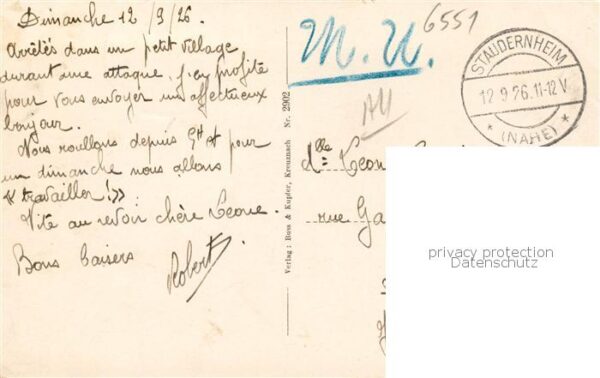 Dimanche 12/9/26.
Arrêtés dans un petit village
durant une attaque, j'en profite
pour vous envoyer un affectueux
bonjour.
Nous roullons depuis 9H et pour
un dimanche nous allons
« travailler !»
Vite au revoir chère Léone.
Bons baisers
Robert
Verlag: Buss & Kupfer, Kreuznach Nr. 2902
M. U.
6551
STAUDERNHEIM
12.9.26.11-12V.
* (NAHE) *
dlle Léon
rue Ga
privacy protection
Datenschutz